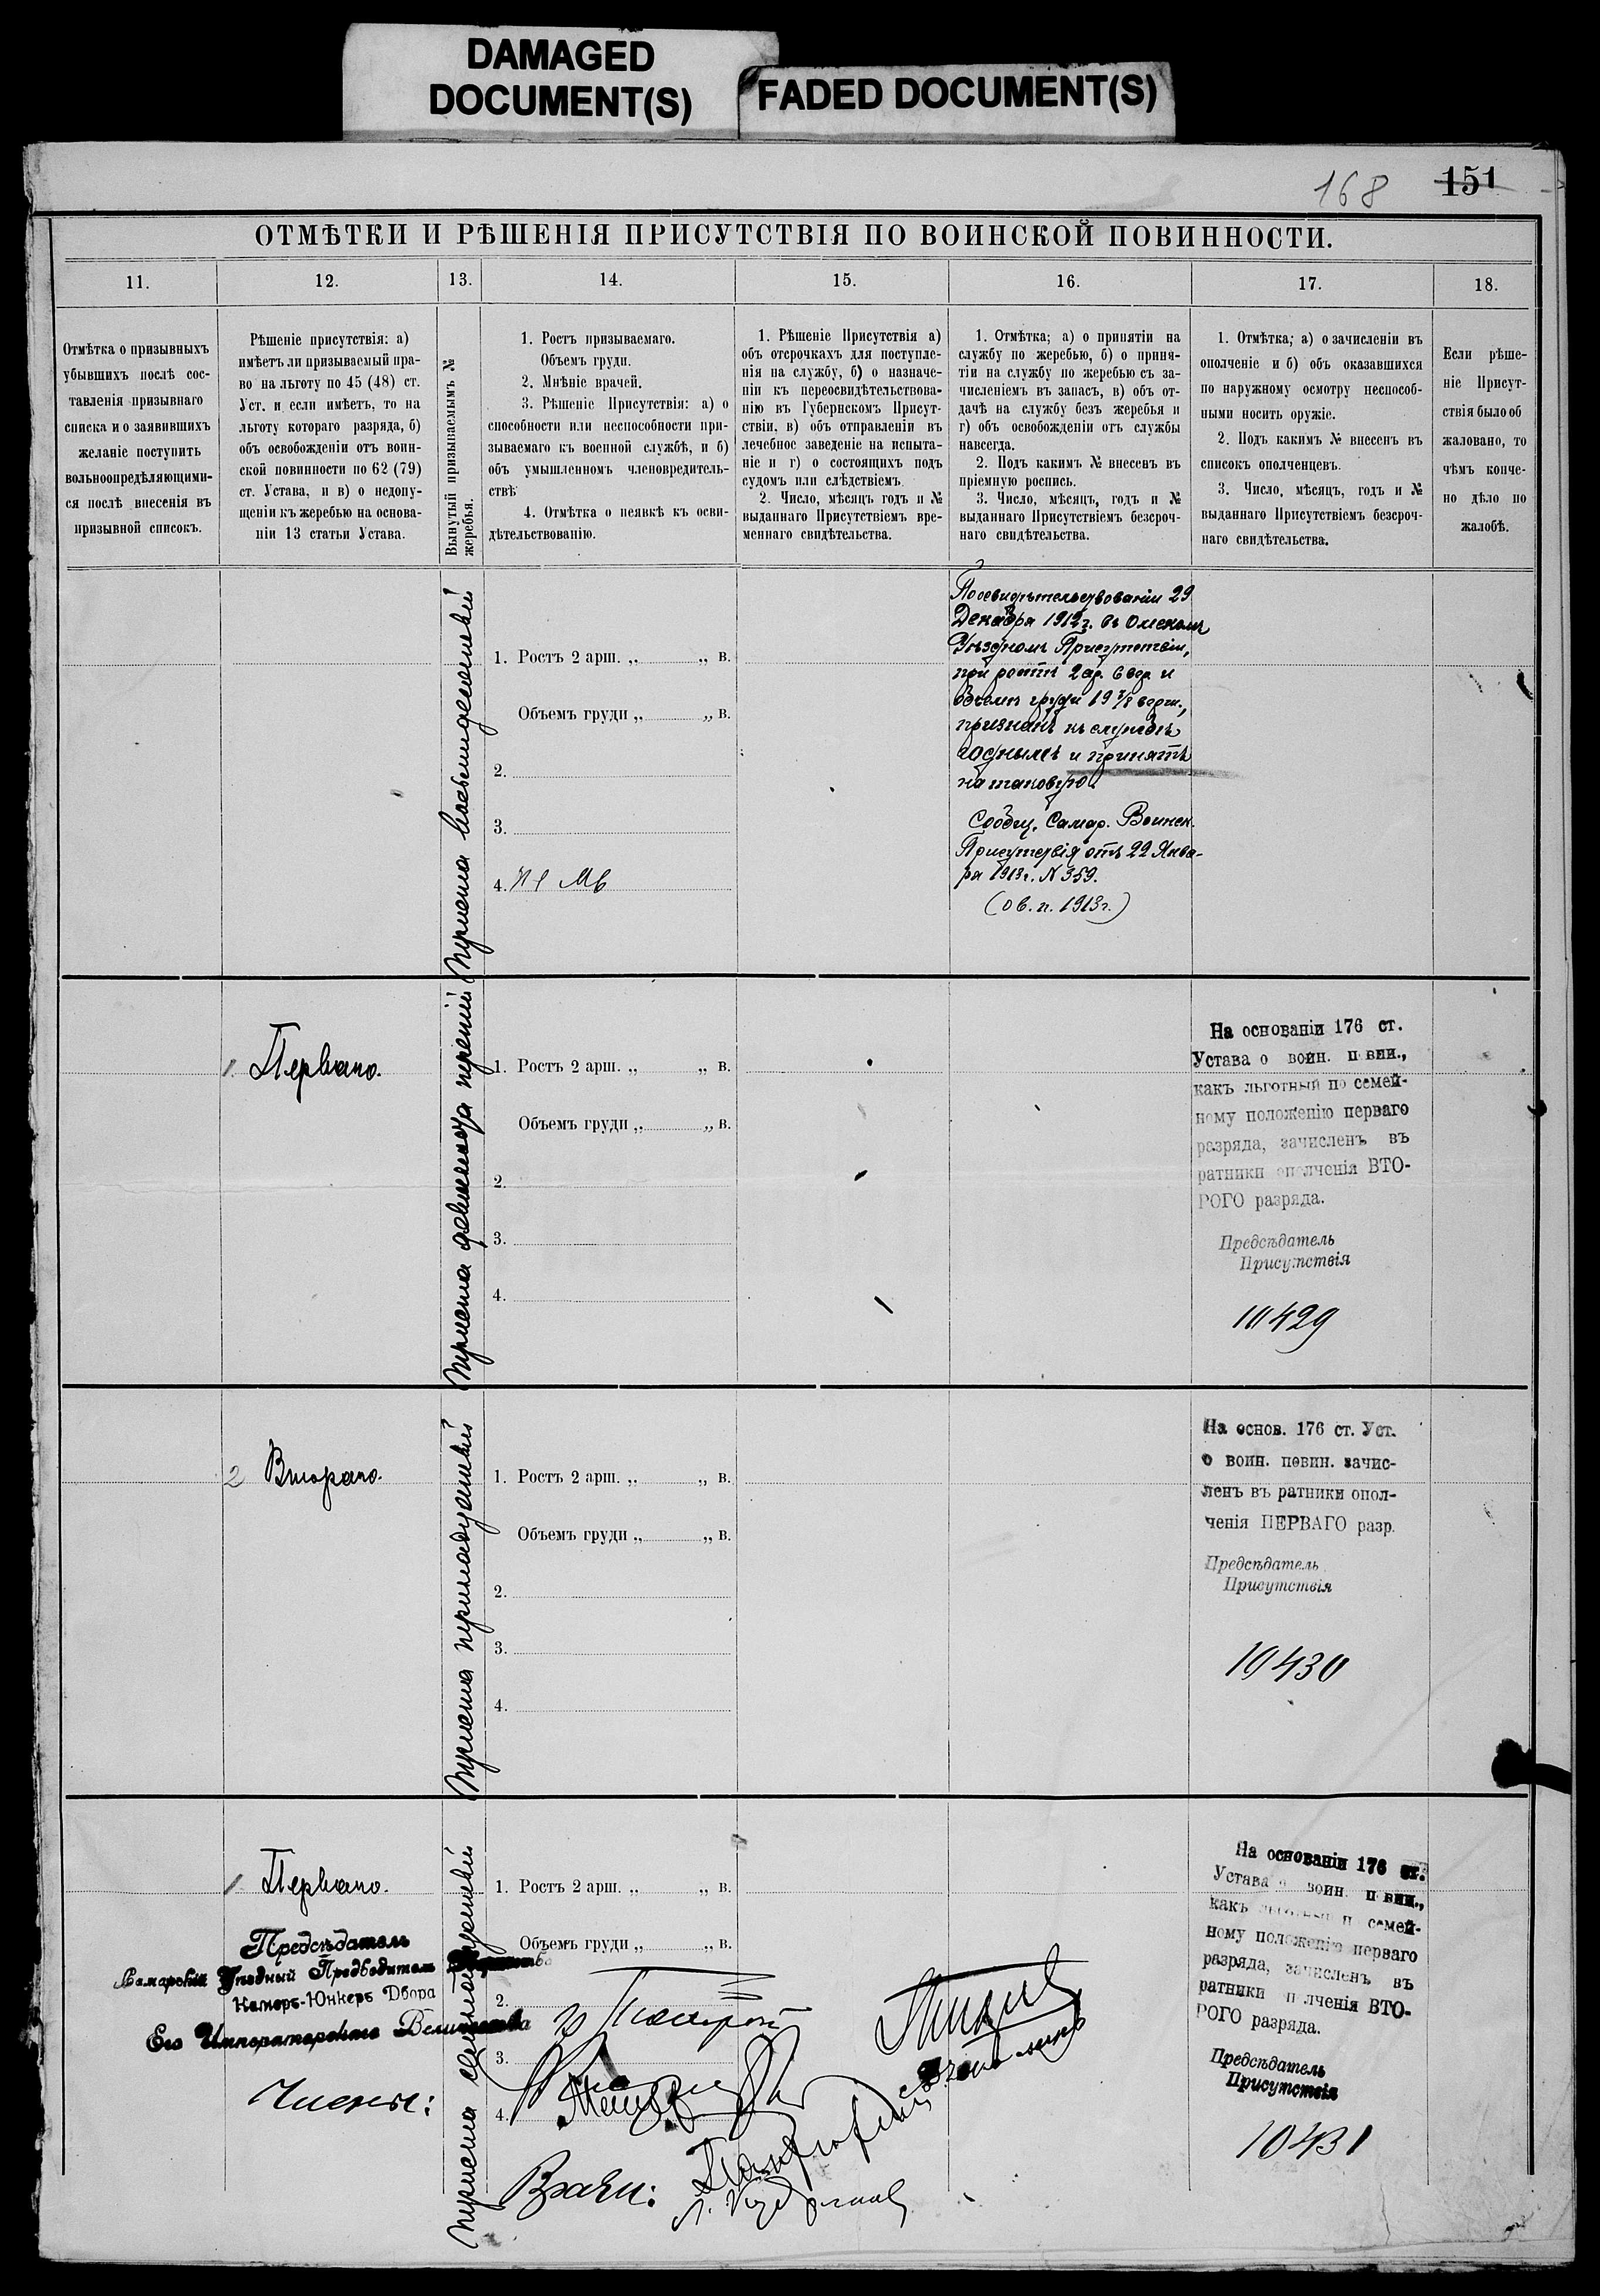 DAMAGED
DOCUMENT(S)
FADED DOCUMENT(S)
168 151
ОТМѢТКИ И РѢШЕНІЯ ПРИСУТСТВІЯ ПО ВОИНСКОЙ ПОВИННОСТИ.
11.
12.
13.
14.
15.
16.
17.
18.
Отмѣтка о призывныхъ
убывшихъ послѣ сос-
тавленія призывнаго
списка и о заявившихъ
желаніе поступить
вольноопредѣляющими-
ся послѣ внесенія въ
призывной списокъ.
Рѣшеніе присутствія: а)
имѣетъ ли призываемый пра-
во на льготу по 45 (48) ст.
Уст. и если имѣетъ, то на
льготу котораго разряда, б)
объ освобожденіи отъ воин-
ской повинности по 62 (79)
ст. Устава, и в) о недопу-
щеніи къ жеребью на основа-
ніи 13 статьи Устава.
Вынутый призываемымъ №
жеребья.
1. Ростъ призываемаго.
Объемъ груди.
2. Мнѣніе врачей.
3. Рѣшеніе Присутствія: а) о
способности или неспособности при-
зываемаго къ военной службѣ, и б)
объ умышленномъ членовредитель-
ствѣ
4. Отмѣтка о неявкѣ къ осви-
дѣтельствованію.
1. Рѣшеніе Присутствія а)
объ отсрочкахъ для поступле-
нія на службу, б) о назначе-
ніи къ переосвидѣтельствова-
нію въ Губернскомъ Присут-
ствіи, в) объ отправленіи въ
лечебное заведеніе на испыта-
ніе и г) о состоящихъ подъ
судомъ или слѣдствіемъ
2. Число, мѣсяцъ годъ и №
выданнаго Присутствіемъ вре-
меннаго свидѣтельства.
1. Отмѣтка; а) о принятіи на
службу по жеребью, б) о приня-
тіи на службу по жеребью съ за-
численіемъ въ запасъ, в) объ от-
дачѣ на службу безъ жеребья и
г) объ освобожденіи отъ службы
навсегда.
2. Подъ какимъ № внесенъ въ
пріемную роспись.
3. Число, мѣсяцъ, годъ и №
выданнаго Присутствіемъ безсроч-
наго свидѣтельства.
1. Отмѣтка; а) о зачисленіи въ
ополченіе и б) объ оказавшихся
по наружному осмотру неспособ-
ными носить оружіе.
2. Подъ какимъ № внесенъ въ
списокъ ополченцевъ.
3. Число, мѣсяцъ, годъ и №
выданнаго Присутствіемъ безсроч-
наго свидѣтельства.
Если рѣше-
ніе Присут-
ствія было об
жаловано, то
чѣмъ конче-
но дѣло по
жалобѣ.
Триста восемьдесятый
1. Ростъ 2 арш. „ „ в.
Объемъ груди „ „ в.
2.
3.
4.
По освидѣтельствованіи 29
Декабря 1912 г. въ Омскомъ
Уѣздномъ Присутствіи,
при ростѣ 2 ар. 6 вер. и
объемѣ груди 19 7/8 верш.,
признанъ къ службѣ
годнымъ и принятъ
на таковую.
Сообщ. Самар. Воинск.
Присутствія отъ 22 Янва-
ря 1913 г. N 359.
(о в. п. 1913 г.)
1 Перваго.
Триста девяносто
1. Ростъ 2 арш. „ „ в.
Объемъ груди „ „ в.
2.
3.
4.
На основаніи 176 ст.
Устава о воин. повин.,
какъ льготный по семей-
ному положенію перваго
разряда, зачисленъ въ
ратники ополченія ВТО-
РОГО разряда.
Предсѣдатель
Присутствія
10429
2 Втораго.
Триста
1. Ростъ 2 арш. „ „ в.
Объемъ груди „ „ в.
2.
3.
4.
На основ. 176 ст. Уст.
о воин. повин. зачис-
ленъ въ ратники опол-
ченія ПЕРВАГО разр.
Предсѣдатель
Присутствія
10430
1 Перваго.
Триста
1. Ростъ 2 арш. „ „ в.
Объемъ груди „ „ в.
2.
3.
4.
На основаніи 176 ст.
Устава о воин. повин.,
какъ льготный по семей-
ному положенію перваго
разряда, зачисленъ въ
ратники ополченія ВТО-
РОГО разряда.
Предсѣдатель
Присутствія
10431
Предсѣдатель
Самарскій Уѣздный Предводитель Дворянства
Камеръ-Юнкеръ Двора
Его Императорскаго Величества
Члены:
Врачи: